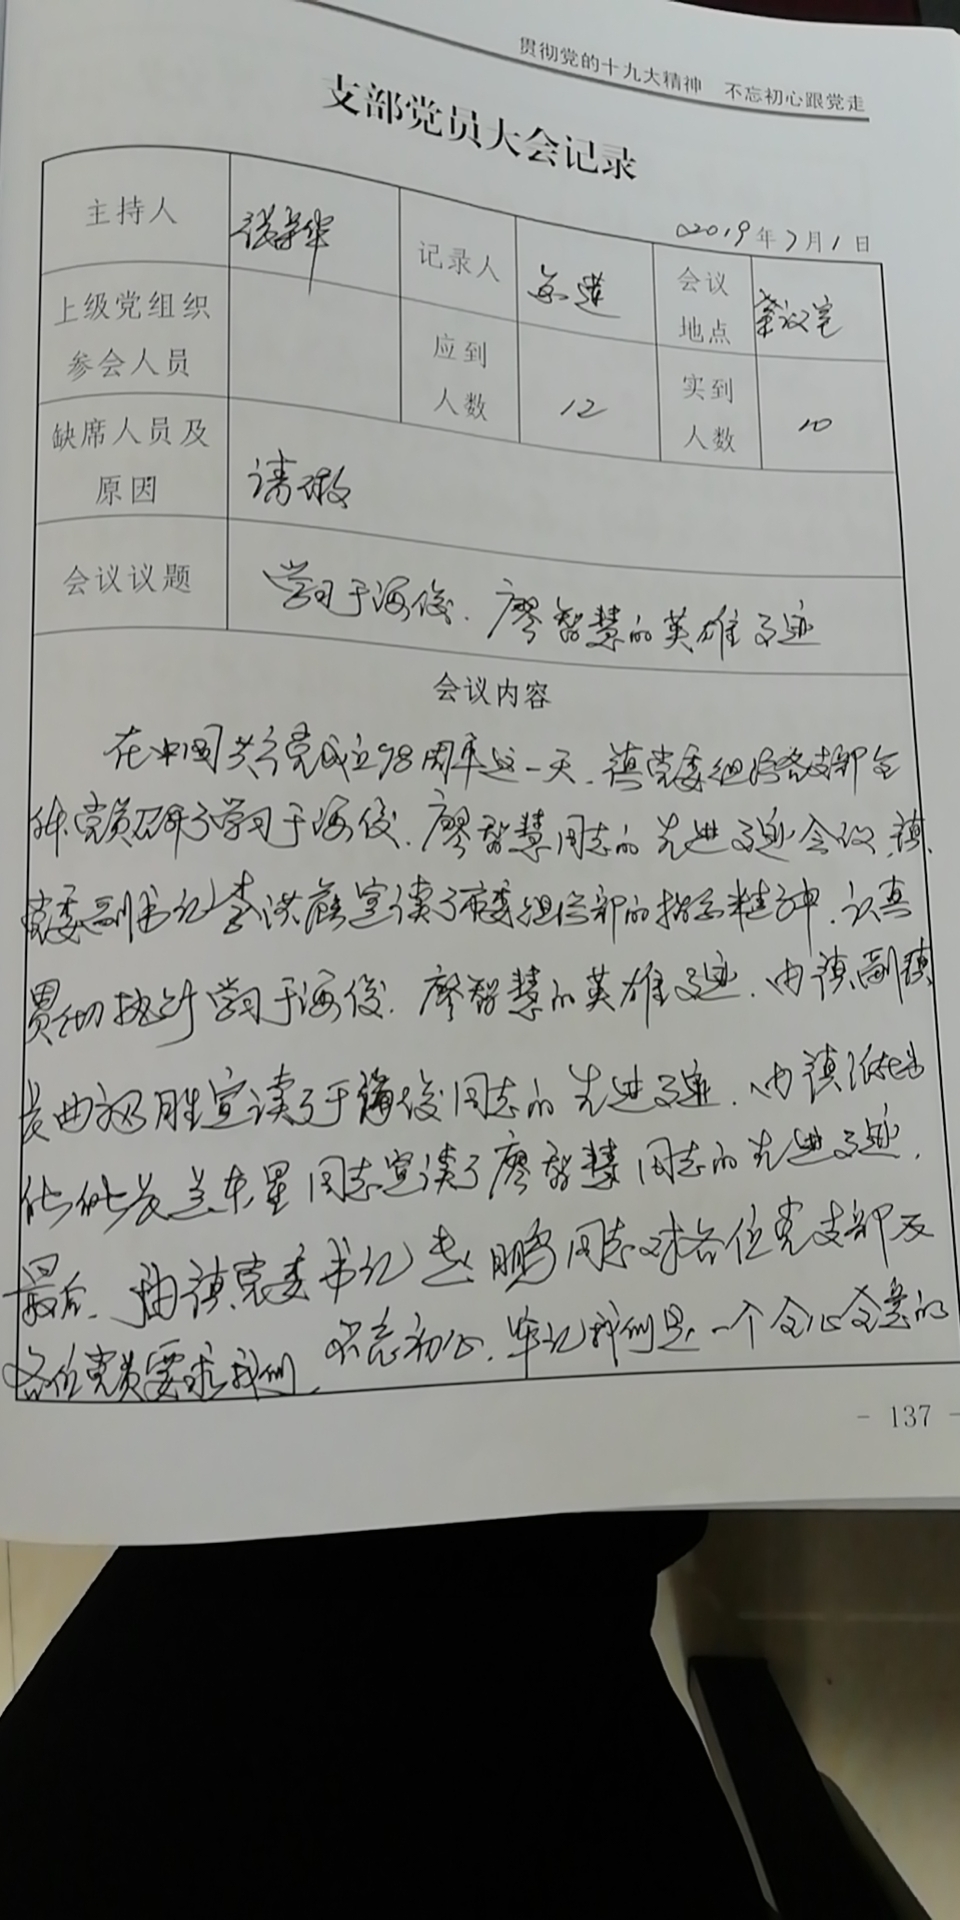 贯彻党的十九大精神 不忘初心跟党走
支部党员大会记录
2019年7月1日
主持人 华 记录人 会议地点 会议室
上级党组织参会人员 应到人数 12 实到人数 10
缺席人员及原因 请假
会议议题 学习于海俊、廖智慧的英雄事迹
会议内容
在中国共产党成立98周年这一天、镇党委组织各支部全
体党员召开了学习于海俊、廖智慧同志的先进事迹会议、镇
党委副书记李洪 宣读了市委组织部的指示精神、认真
贯彻执行学习于海俊、廖智慧的英雄事迹、由镇副镇
长曲 胜宣读了于海俊同志的先进事迹、由镇
东星同志宣读了廖智慧同志的先进事迹、
最后、由镇党委书记赵鹏同志对各位党支部及
各位党员要求我们、不忘初心、牢记我们是一个全心全意的
- 137 -